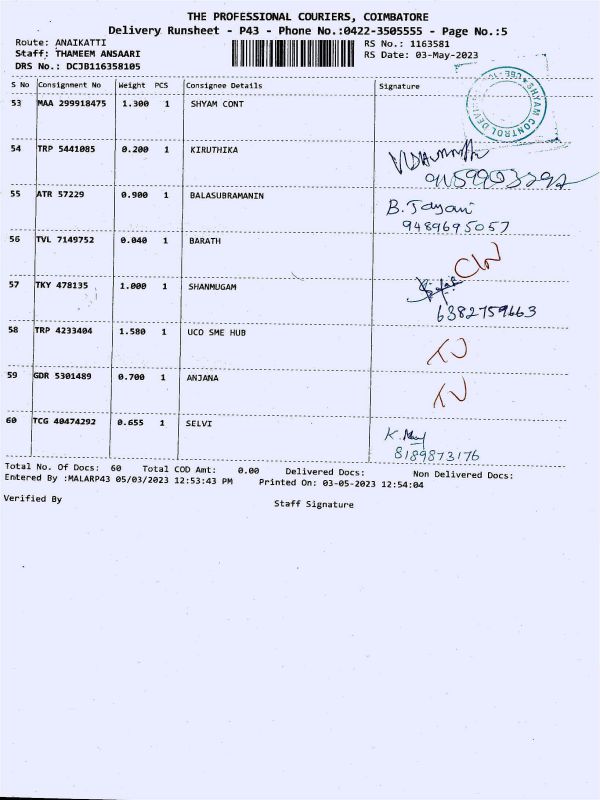 THE PROFESSIONAL COURIERS, COIMBATORE
Delivery Runsheet - P43 - Phone No.:0422-3505555 - Page No.:5
Route: ANAIKATTI RS No.: 1163581
Staff: THAMEEM ANSAARI RS Date: 03-May-2023
DRS No.: DCJB116358105
S No Consignment No Weight PCS Consignee Details Signature
53 MAA 299918475 1.300 1 SHYAM CONT
54 TRP 5441085 0.200 1 KIRUTHIKA
55 ATR 57229 0.900 1 BALASUBRAMANIN
B. Jayani
9489695057
56 TVL 7149752 0.040 1 BARATH
57 TKY 478135 1.000 1 SHANMUGAM
6382759663
58 TRP 4233404 1.580 1 UCO SME HUB
59 GDR 5301489 0.700 1 ANJANA
60 TCG 40474292 0.655 1 SELVI
8189873176
Total No. Of Docs: 60 Total COD Amt: 0.00 Delivered Docs: Non Delivered Docs:
Entered By :MALARP43 05/03/2023 12:53:43 PM Printed On: 03-05-2023 12:54:04
Verified By Staff Signature